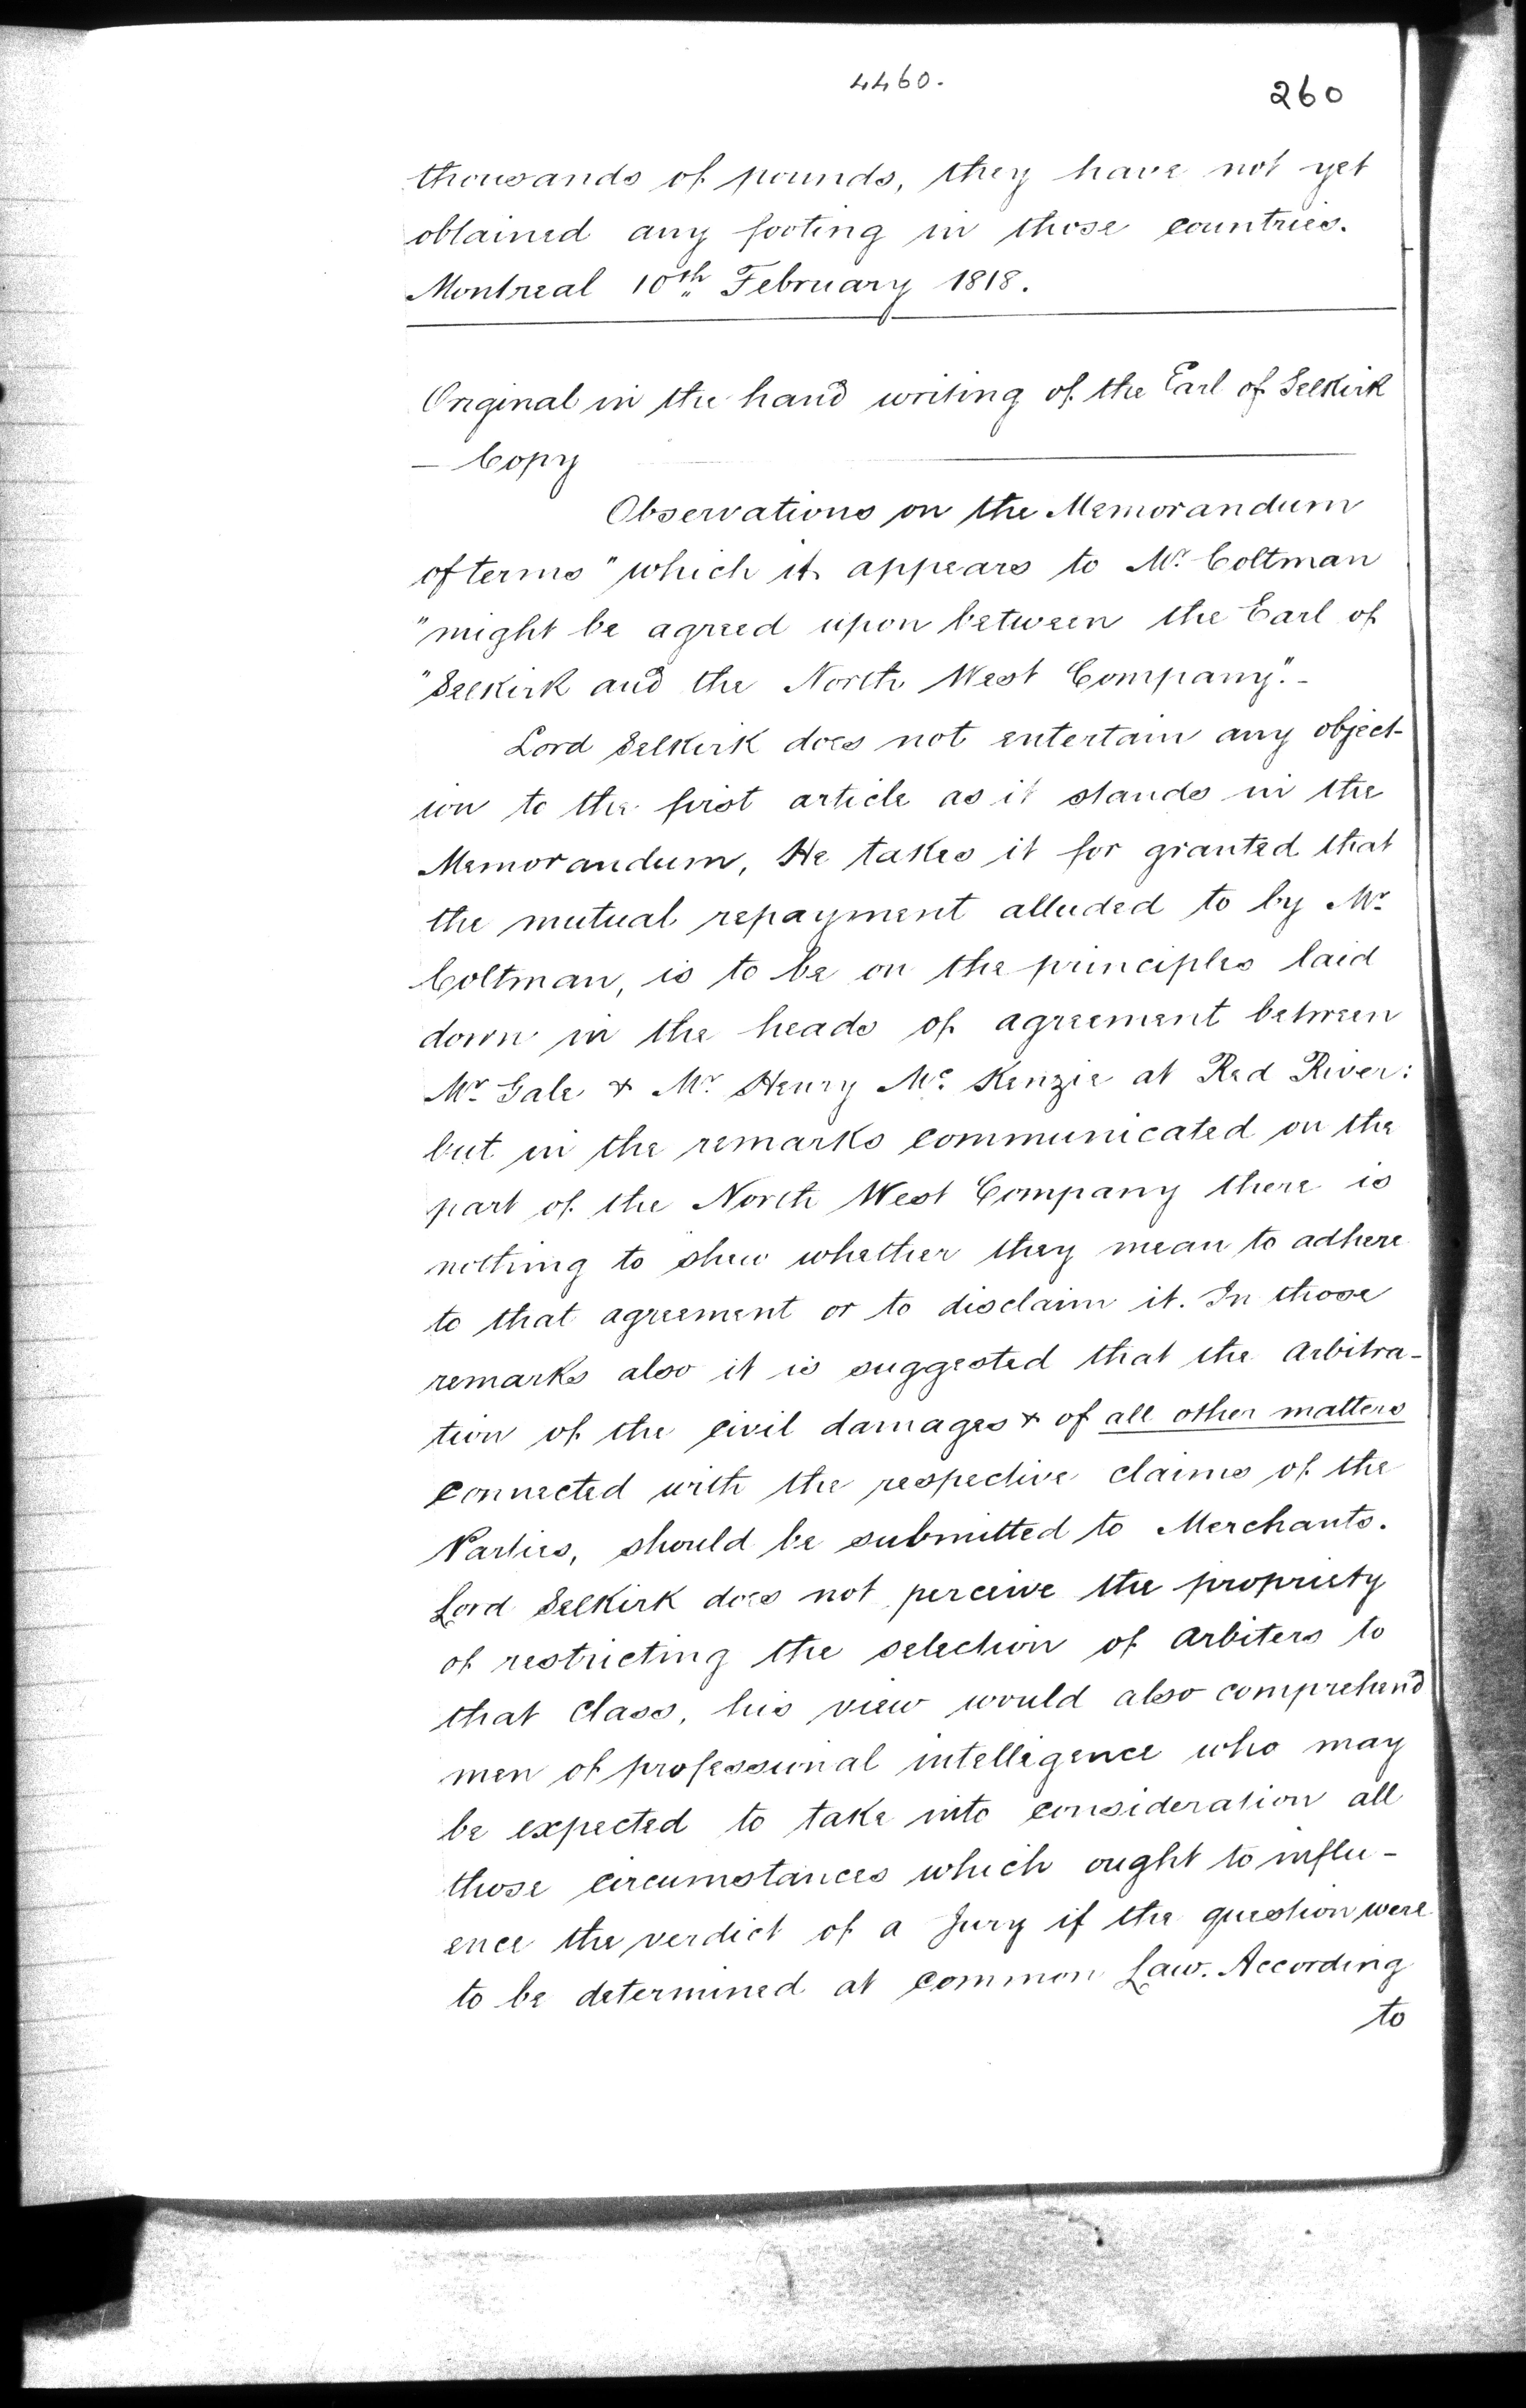 4460.
260
thousands of pounds, they have not yet
obtained any footing in those countries.
Montreal 10th February 1818.
Original in the hand writing of the Earl of Selkirk
— Copy
Observations on the Memorandum
of terms "which it appears to Mr. Coltman
"might be agreed upon between the Earl of
"Selkirk and the North West Company." -
Lord Selkirk does not entertain any object-
ion to the first article as it stands in the
Memorandum, He takes it for granted that
the mutual repayment alluded to by Mr.
Coltman, is to be on the principles laid
down in the heads of agreement between
Mr. Gale & Mr. Henry Mc. Kenzie at Red River:
but in the remarks communicated on the
part of the North West Company there is
nothing to shew whether they mean to adhere
to that agreement or to disclaim it. In those
remarks also it is suggested that the arbitra-
tion of the civil damages & of all other matters
connected with the respective claims of the
Parties, should be submitted to Merchants.
Lord Selkirk does not perceive the propriety
of restricting the selection of arbiters to
that class, his view would also comprehend
men of professional intelligence who may
be expected to take into consideration all
those circumstances which ought to influ-
ence the verdict of a Jury if the question were
to be determined at common Law. According
to